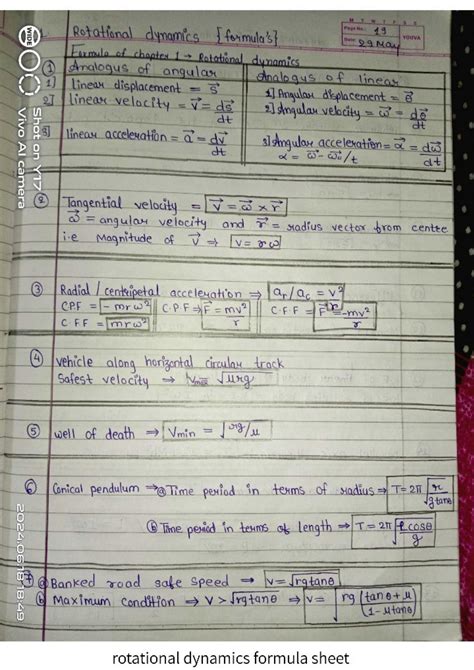 M T W T F S S
Page No.: 19
Date: 29 May
YOUVA
Rotational dynamics [formula's]
Formula of chapter 1 → Rotational dynamics
① Analogus of angular
1) linear displacement = s⃗
2] linear velocity = v⃗ = ds⃗/dt
3] linear acceleration = a⃗ = dv⃗/dt
Analogus of linear
1] Angular displacement = θ⃗
2] Angular velocity = ω⃗ = dθ⃗/dt
3] Angular acceleration = α⃗ = dω⃗/dt
α = ω⃗ - ω⃗₀/t
② Tangential velocity = v⃗ = ω⃗ × r⃗
ω⃗ = angular velocity and r⃗ = radius vector from centre
i.e Magnitude of v⃗ ⇒ v = rω
③ Radial / centripetal acceleration ⇒ ar/ac = v²
C.P.F = - mrω² || C.P.F ⇒ F⃗ = mv²/r || C.F.F = F⃗ = -mv²/r
C.F.F = mrω²
④ vehicle along horizontal circular track
safest velocity → Vmax √μrg
⑤ well of death ⇒ Vmin = √rg/μ
⑥ Conical pendulum → ⓐ Time period in terms of radius ⇒ T = 2π √r/g tanθ
ⓑ Time period in terms of length ⇒ T = 2π √l cosθ/g
7 ⓐ Banked road safe speed ⇒ v = √rg tanθ
ⓑ Maximum condition ⇒ V > √rg tanθ ⇒ v = √rg (tanθ + μ/1 - μ tanθ)
Shot on Y17
Vivo AI camera
2024.06.18 18:49
rotational dynamics formula sheet